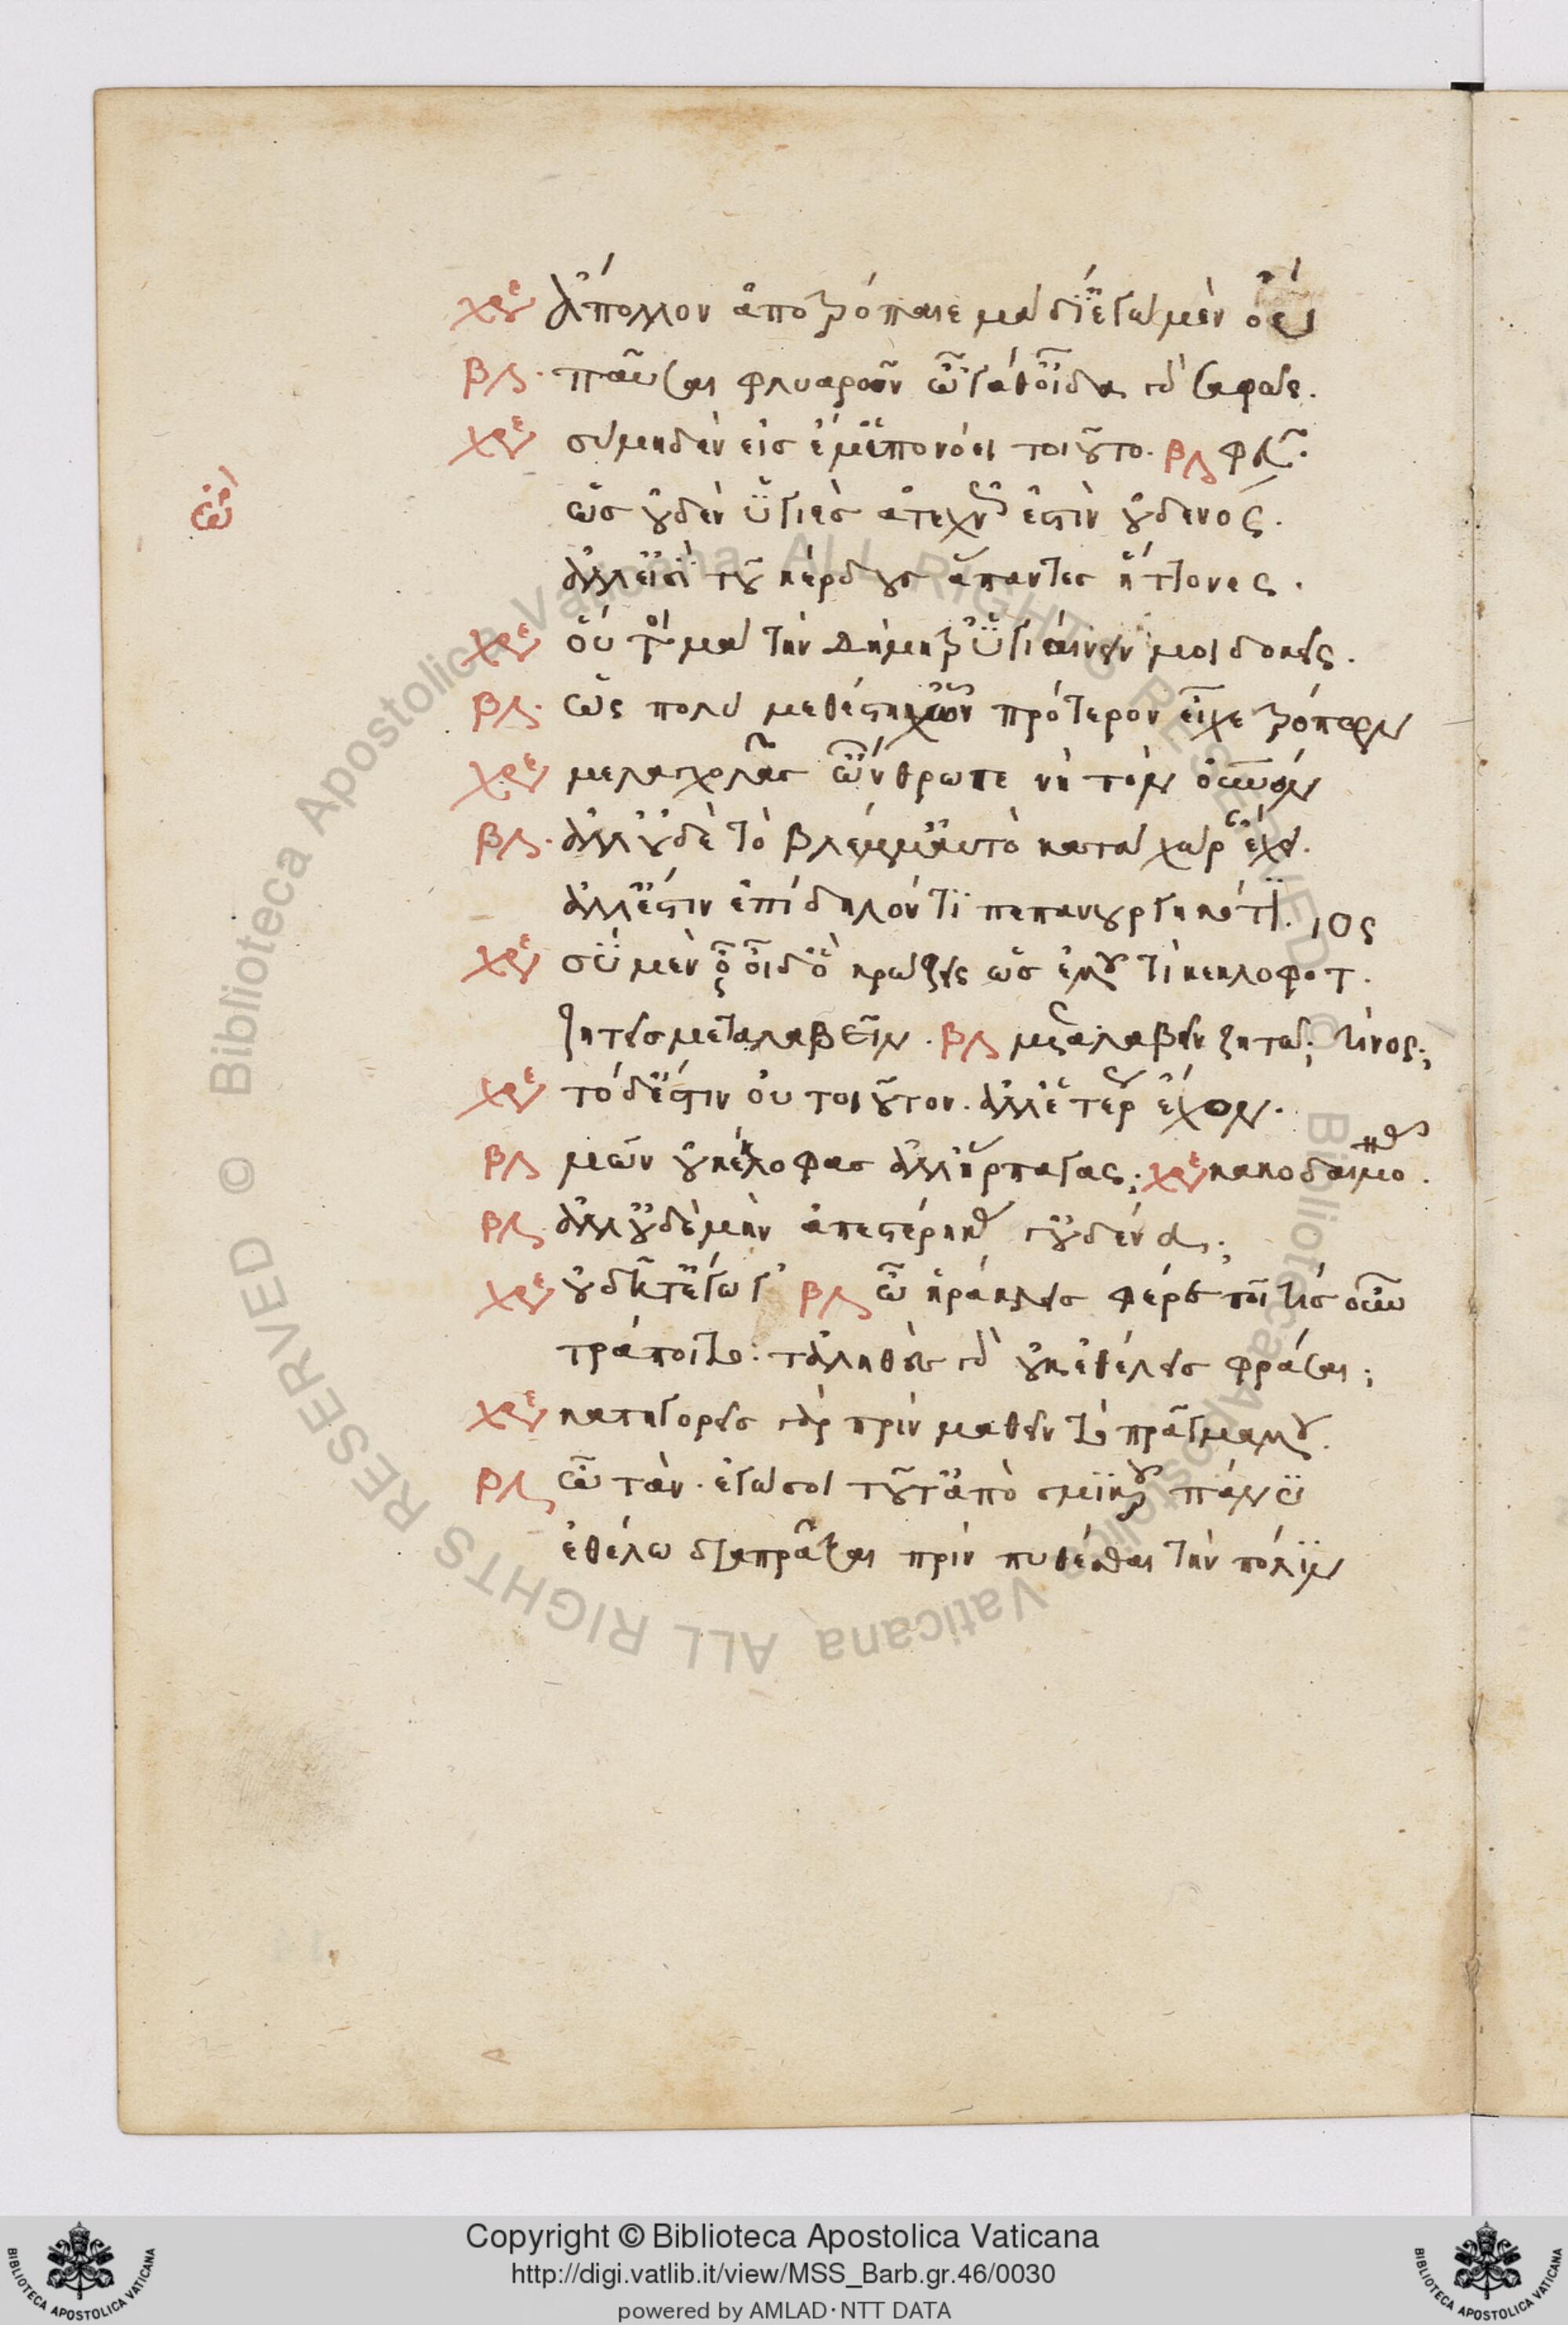 χρε ἄπολλον ἀποτρόπαιε μὰ δι' ἐγὼ μὲν οὔ
βλ. παῦσαι φλυαρῶν ὦ 'γάθ' οἶδα γὰρ σαφῶς.
χρε σὺ μηδὲν εἰς ἔμ' ἐπονόει τοιοῦτο. βλ φεῦ.
ὡς οὐδὲν ὑγιὲς ἀτεχνῶς ἐστὶν οὐδενός.
ἀλλ' εἰσὶ τοῦ κέρδους ἅπαντες ἥττονες.
χρε οὔ τοι μὰ τὴν Δήμητρ' ὑγιαίνειν μοι δοκεῖς.
βλ. ὡς πολὺ μεθέστηχ' ὧν πρότερον εἶχε τρόπων
χρε μελαγχολᾷς ὦ 'νθρωπε νὴ τὸν οὐρανόν
βλ. ἀλλ' οὐδὲ τὸ βλέμμ' αὐτὸ κατὰ χώραν ἔχει.
ἀλλ' ἔστιν ἐπίδηλόν τι πεπανουργηκότι. ιος
χρε σὺ μὲν οἶδ' ὃ κρώζεις ὡς ἐμοῦ τι κεκλοφότ.
ζητεῖς μεταλαβεῖν. βλ μεταλαβεῖν ζητῶ; τίνος;
χρε τὸ δ' ἔστιν οὐ τοιοῦτον. ἀλλ' ἑτέρως ἔχον.
βλ μῶν οὐ κέκλοφας ἀλλ' ἥρπασας; χρε κακοδαιμο.
βλ. ἀλλ' οὐδὲ μὴν ἀπεστέρηκας γ' οὐδένα;
χρε οὐ δῆτ' ἔγωγ' βλ ὦ ἡράκλεις φέρε ποῖ τις οὖν
τράποιτο· τἀληθὲς γὰρ οὐκ ἐθέλεις φράσαι;
χρε κατηγορεῖς γὰρ πρὶν μαθεῖν τὸ πρᾶγμά μου.
βλ ὦ τᾶν. ἐγώ σοι τοῦτ' ἀπὸ σμικροῦ πάνυ
ἐθέλω διαπρᾶξαι πρὶν πυθέσθαι τὴν πόλιν
Copyright © Biblioteca Apostolica Vaticana
http://digi.vatlib.it/view/MSS_Barb.gr.46/0030
powered by AMLAD·NTT DATA
Biblioteca Apostolica Vaticana ALL RIGHTS RESERVED ©
Biblioteca Apostolica Vaticana ALL RIGHTS RESERVED ©
BIBLIOTECA APOSTOLICA VATICANA
BIBLIOTECA APOSTOLICA VATICANA